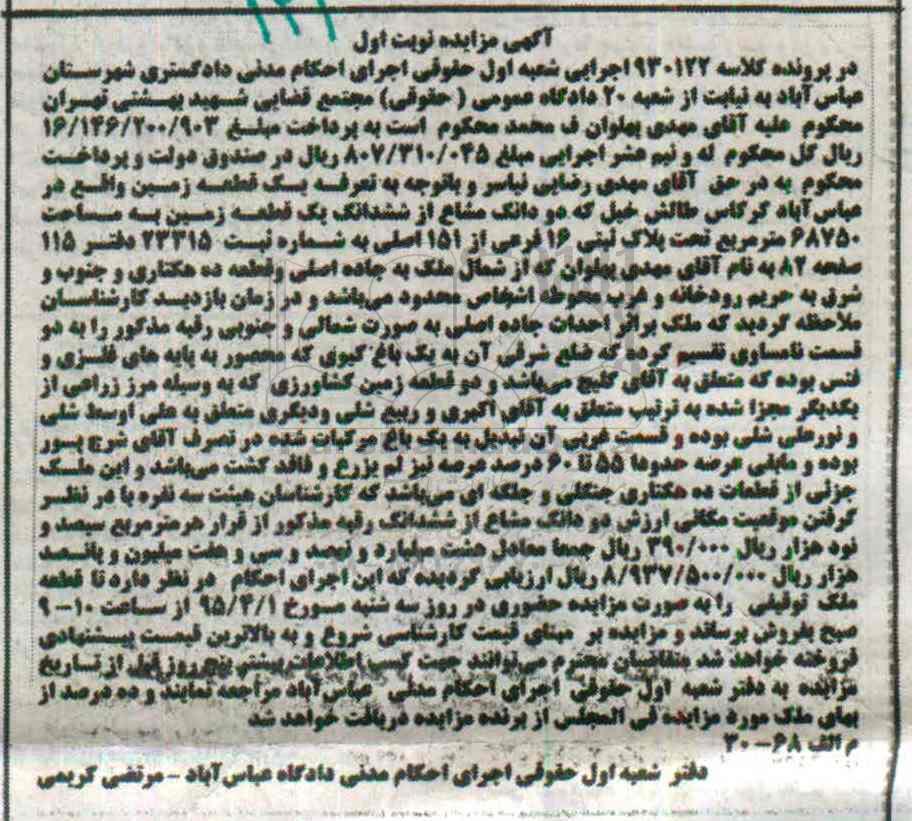 آگهی مزایده نوبت اول
در پرونده کلاسه ۹۳۰۱۲۲ اجرایی شعبه اول حقوقی اجرای احکام مدنی دادگستری شهرستان
عباس آباد به نیابت از شعبه ۲۰ دادگاه عمومی (حقوقی) مجتمع قضایی شهید بهشتی تهران
محکوم علیه آقای مهدی پهلوان ف محمد محکوم است به پرداخت مبلغ ۱۶/۱۴۶/۲۰۰/۹۰۳
ریال کل محکوم له و نیم عشر اجرایی مبلغ ۸۰۷/۳۱۰/۰۴۵ ریال در صندوق دولت و پرداخت
محکوم به در حق آقای مهدی رضایی نیاسر و باتوجه به تعرفه یک قطعه زمین واقع در
عباس آباد کرکاس طالش خیل که دو دانک مشاع از ششدانک یک قطعه زمین به مساحت
۶۸۷۵۰ مترمربع تحت پلاک ثبتی ۱۶ فرعی از ۱۵۱ اصلی به شماره ثبت ۲۳۳۱۵ دفتر ۱۱۵
صفحه ۸۲ به نام آقای مهدی پهلوان که از شمال ملک به جاده اصلی وقطعه ده هکتاری و جنوب و
شرق به حریم رودخانه و غرب محوطه اشخاص محدود می‌باشد و در زمان بازدید کارشناسان
ملاحظه گردید که ملک براثر احداث جاده اصلی به صورت شمالی و جنوبی رقبه مذکور را به دو
قسمت نامساوی تقسیم کرده که ضلع شرقی آن به یک باغ کیوی که محصور به پایه های فلزی و
فنس بوده که متعلق به آقای کلیج می‌باشد و دو قطعه زمین کشاورزی که به وسیله مرز زراعی از
یکدیگر مجزا شده به ترتیب متعلق به آقای اکبری و ربیع شلی ودیگری متعلق به علی اوسط شلی
و نورعلی شلی بوده و قسمت غربی آن تبدیل به یک باغ مرکبات شده در تصرف آقای شرج پور
بوده و مابقی عرصه حدودا ۵۵ تا ۶۰ درصد عرصه نیز لم یزرع و فاقد کشت می‌باشد و این ملک
جزئی از قطعات ده هکتاری جنگلی و جلکه ای می‌باشد که کارشناسان هیئت سه نفره با در نظر
گرفتن موقعیت مکانی ارزش دو دانک مشاع از ششدانک رقبه مذکور از قرار هرمترمربع سیصد و
نود هزار ریال ۳۹۰/۰۰۰ ریال جمعا معادل هشت میلیارد و نهصد و سی و هفت میلیون و پانصد
هزار ریال ۸/۹۳۷/۵۰۰/۰۰۰ ریال ارزیابی گردیده که این اجرای احکام در نظر دارد تا قطعه
ملک توقیفی را به صورت مزایده حضوری در روز سه شنبه مورخ ۹۵/۴/۱ از ساعت ۱۰-۹
صبح بفروش برساند و مزایده بر مبنای قیمت کارشناسی شروع و به بالاترین قیمت پیشنهادی
فروخته خواهد شد متقاضیان محترم می‌توانند جهت کسب اطلاعات بیشتر پنج روز قبل از تاریخ
مزایده به دفتر شعبه اول حقوقی اجرای احکام مدنی عباس آباد مراجعه نمایند و ده درصد از
بهای ملک مورد مزایده فی المجلس از برنده مزایده دریافت خواهد شد
م الف ۶۸-۳۰
دفتر شعبه اول حقوقی اجرای احکام مدنی دادگاه عباس آباد - مرتضی کریمی